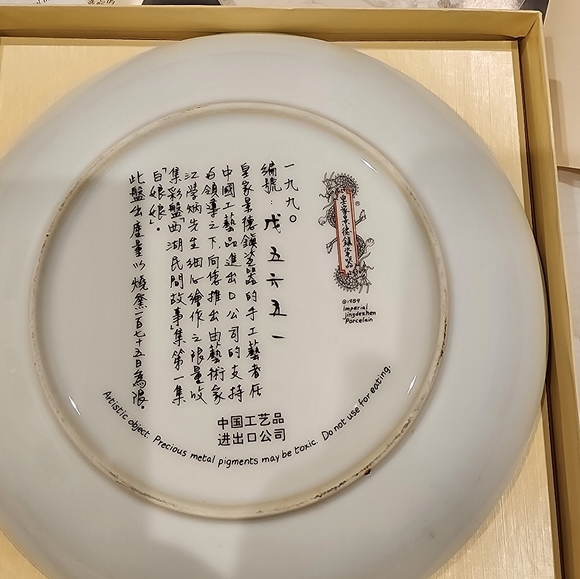 一九九〇
編號：戊五六五一
皇家景德鎮瓷器的手工藝者在
中國工藝品進出口公司的支持
与領導之下，向您推出由藝術家
江瑩炳先生細心繪作之限量收
集彩盤「西湖民間故事」集第一集
「白娘娘」。
此盤出産量以燒窯一百七十五日為限。
皇家景德鎮瓷器
®
©1989
Imperial
Jingdezhen
Porcelain
中国工艺品
进出口公司
Artistic object. Precious metal pigments may be toxic. Do not use for eating.